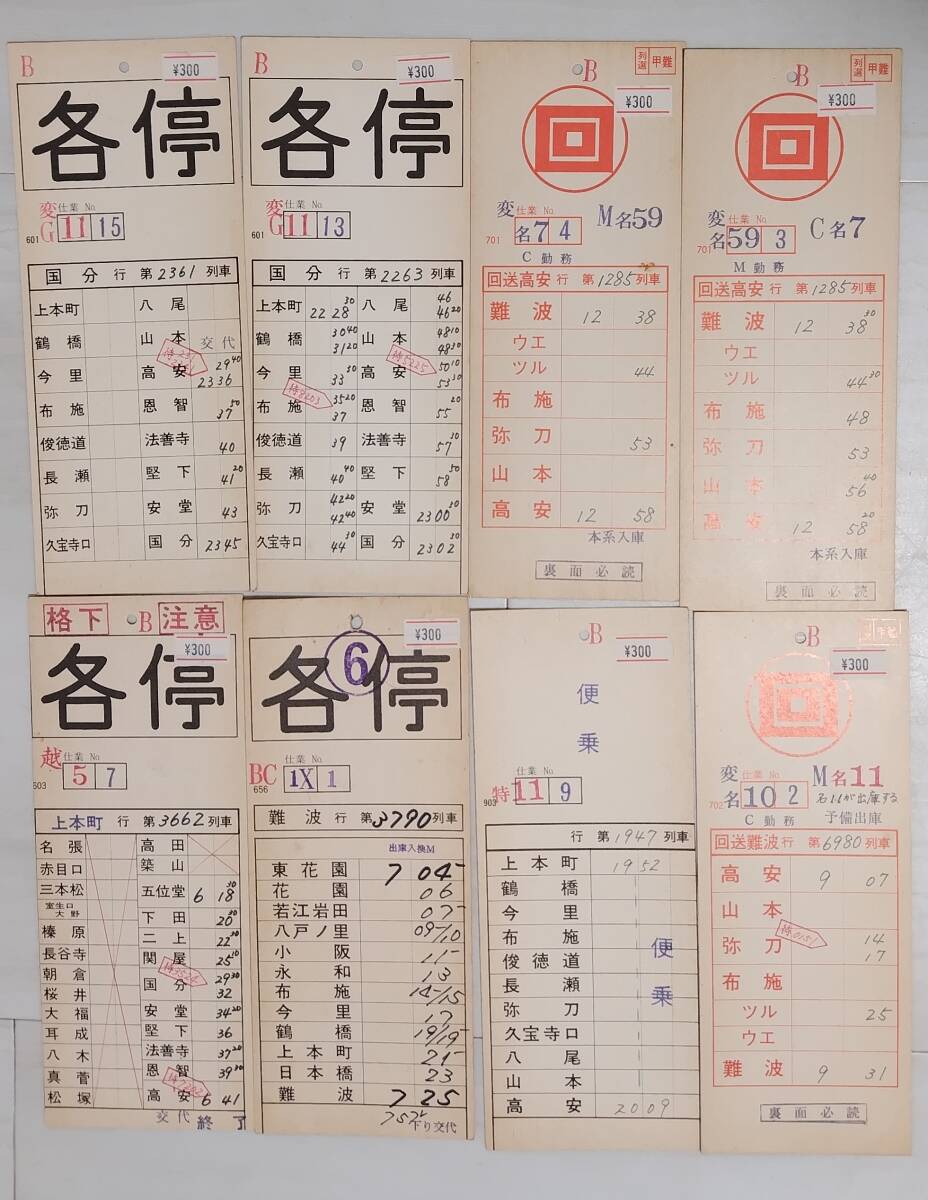 B
¥300
各停
変 仕業 No
G 11 15
601
国分 行 第2361列車
上本町 八尾
鶴橋 山本 交代
今里 高安 29 40 2336
布施 恩智 37 50
俊徳道 法善寺 40
長瀬 堅下 41 20
弥刀 安堂 43
久宝寺口 国分 2345
B
¥300
各停
変 仕業 No
G 11 13
601
国分 行 第2263列車
上本町 22 28 30 八尾 46 46 20
鶴橋 30 40 31 20 山本 48 10 48 30
待5225
今里 33 50 高安 50 10 53 30
待8203
布施 35 20 37 恩智 55 20
俊徳道 39 法善寺 57 30
長瀬 40 40 堅下 58 50
弥刀 42 20 42 40 安堂 2300 30
久宝寺口 44 30 国分 2302 30
B
列選 甲難
¥300
回
変 仕業 No
名7 4 M名59
701
C勤務
回送高安 行 第1285列車
難波 12 38
ウエ
ツル 44
布施
弥刀 53
山本
高安 12 58
本系入庫
裏面必読
B
列選 甲難
¥300
回
変 仕業 No
名59 3 C名7
701
M勤務
回送高安 行 第1285列車
難波 12 38 30
ウエ
ツル 44 30
布施 48
弥刀 53
山本 56 40
高安 12 58 20
本系入庫
裏面必読
格下 B 注意
¥300
各停
越 仕業 No
5 7
603
上本町 行 第3662列車
名張 高田
赤目口 築山
三本松 五位堂 6 18 30
室生口大野 下田 20 30
榛原 二上 22 30
長谷寺 関屋 25 10
朝倉 国分 29 30 32
桜井 安堂 34 20
大福 堅下 36
耳成 法善寺 37 20
八木 恩智 39 30
真菅 高安 6 41
松塚
交代 終了
¥300
各停
6
BC 仕業 No
1X 1
656
難波 行 第3790列車
出庫入換M
東花園 7 04
花園 06
若江岩田 07
八戸ノ里 09/10
小阪 11
永和 13
布施 14/15
今里 17
鶴橋 19/19
上本町 21
日本橋 23
難波 7 25
下り交代
B
¥300
便乗
仕業 No
特 11 9
903
行 第1947列車
上本町 19 52
鶴橋
今里
布施
俊徳道
長瀬
弥刀
久宝寺口
八尾
山本
高安 20 09
便乗
B
¥300
回
変 仕業 No
名10 2 M名11
702
名11が出庫する
C勤務 予備出庫
回送難波 行 第6980列車
高安 9 07
山本
弥刀 14 17
布施
ツル 25
ウエ
難波 9 31
裏面必読